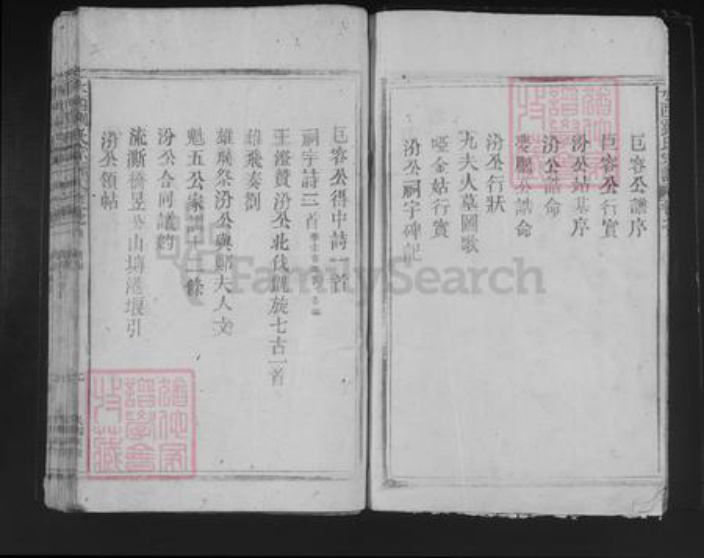 巨容公譜序
巨容公行實
汾公墓序
汾公誥命
慶鵬公誥命
汾公行狀
九夫人墓圖歌
啞金姑行實
汾公祠宇碑記
巨容公得中詩一首
祠宇詩三首
王澄贊汾公北伐凱旋七古一首
雄飛奏劄
雄飛祭汾公與鄭夫人文
魁五公家訓十二條
汾公合同議約
流澌橋昱公山塲港堰引
汾公領帖
FamilySearch